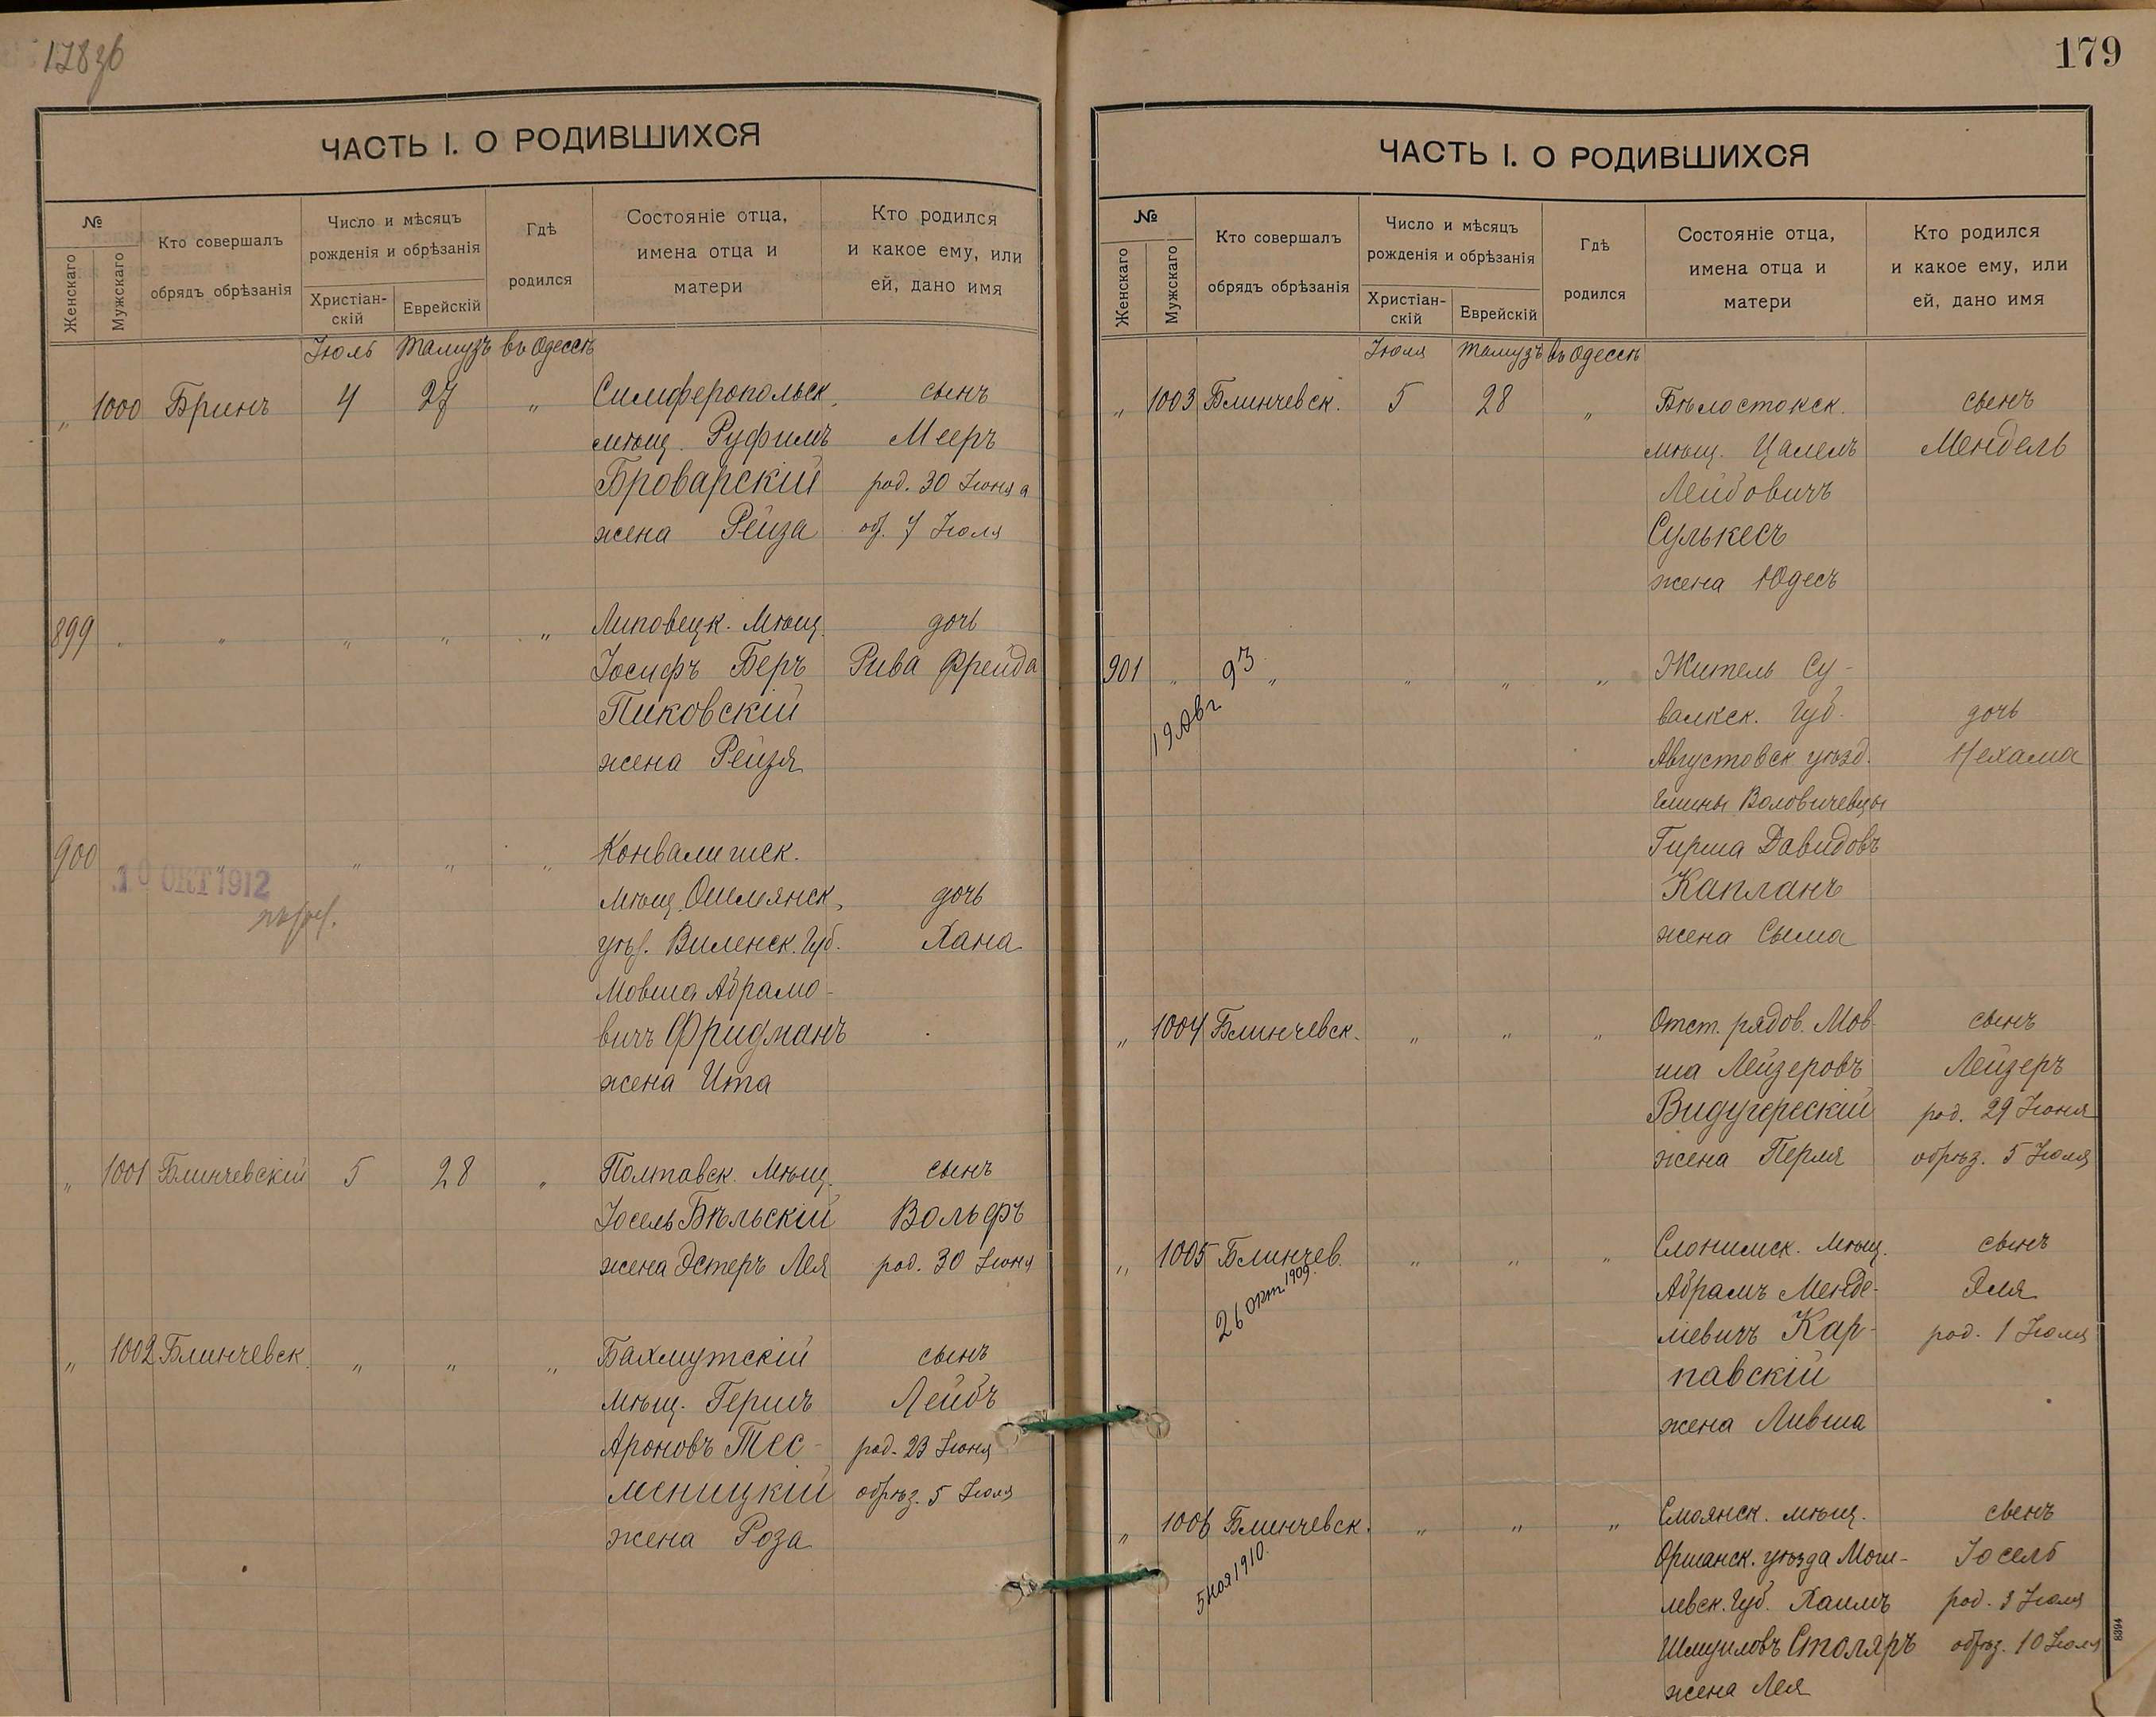 178об
ЧАСТЬ I. О РОДИВШИХСЯ
№
Женскаго
Мужскаго
Кто совершалъ
обрядъ обрѣзанія
Число и мѣсяцъ
рожденія и обрѣзанія
Христіан-
скій
Еврейскій
Гдѣ
родился
Состояніе отца,
имена отца и
матери
Кто родился
и какое ему, или
ей, дано имя
Іюль Тамузъ въ Одессѣ
„ 1000 Бринъ 4 27 „ Симферопольск. сынъ
мѣщ. Руфимъ Мееръ
Броварскій род. 30 Іюня а
жена Рейза об. 7 Іюля
899 „ „ „ „ „ Липовецк. Мѣщ. дочь
Іосифъ Беръ Рива Фрейда
Пиковскій
жена Рейзя
900 „ „ „ Конвалишск.
10 ОКТ 1912
мѣщ. Ошмянск. дочь
уѣз. Виленск. Губ. Хана
Мовша Абрамо-
вичъ Фридманъ
жена Ита
„ 1001 Блинчевскій 5 28 „ Полтавск. Мѣщ. сынъ
Іосель Бѣльскій Вольфъ
жена Эстеръ Лея род. 30 Іюня
„ 1002 Блинчевск. „ „ „ Бахмутскій сынъ
мѣщ. Гершъ Лейбъ
Ароновъ Тес-
род. 23 Іюня
меницкій обрѣз. 5 Іюля
жена Роза
179
ЧАСТЬ I. О РОДИВШИХСЯ
№
Женскаго
Мужскаго
Кто совершалъ
обрядъ обрѣзанія
Число и мѣсяцъ
рожденія и обрѣзанія
Христіан-
скій
Еврейскій
Гдѣ
родился
Состояніе отца,
имена отца и
матери
Кто родился
и какое ему, или
ей, дано имя
Іюля Тамузъ въ Одессѣ
„ 1003 Блинчевск. 5 28 „ Бѣлостокск. сынъ
мѣщ. Цалелъ Мендель
Лейбовичъ
Сулькесъ
жена Юдесъ
901 „ „ „ „ „ Житель Су-
19 Авг 93
валкск. Губ. дочь
Августовск уѣзд. Нехама
Гмины Воловичевцы
Гирша Давидовъ
Капланъ
жена Сыма
„ 1004 Блинчевск. „ „ „ Отст. рядов. Мов-
сынъ
ша Лейзеровъ Лейзеръ
Видугерескій род. 29 Іюня
жена Перля обрѣз. 5 Іюля
„ 1005 Блинчев. „ „ „ Слонимск. мѣщ. сынъ
26 окт 1909.
Абрамъ Менде-
Эля
левичъ Кар-
род. 1 Іюля
павскій
жена Ливша
„ 1006 Блинчевск. „ „ „ Смолянск. мѣщ. сынъ
5 ноя 1910.
Оршанск. уѣзда Моги-
Іосель
левск. Губ. Хаимъ род. 3 Іюля
Шмуиловъ Столяръ обрѣз. 10 Іюля
жена Лея
8394